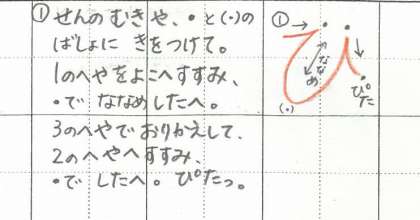 ①せんのむきや、・と(・)の
ばしょに きをつけて。
1のへやをよこへすすみ、
・で ななめしたへ。
3のへやでおりかえして、
2のへやへすすみ、
・で したへ。ぴたっ。
①
ひ
ななめ
(・)
ぴた